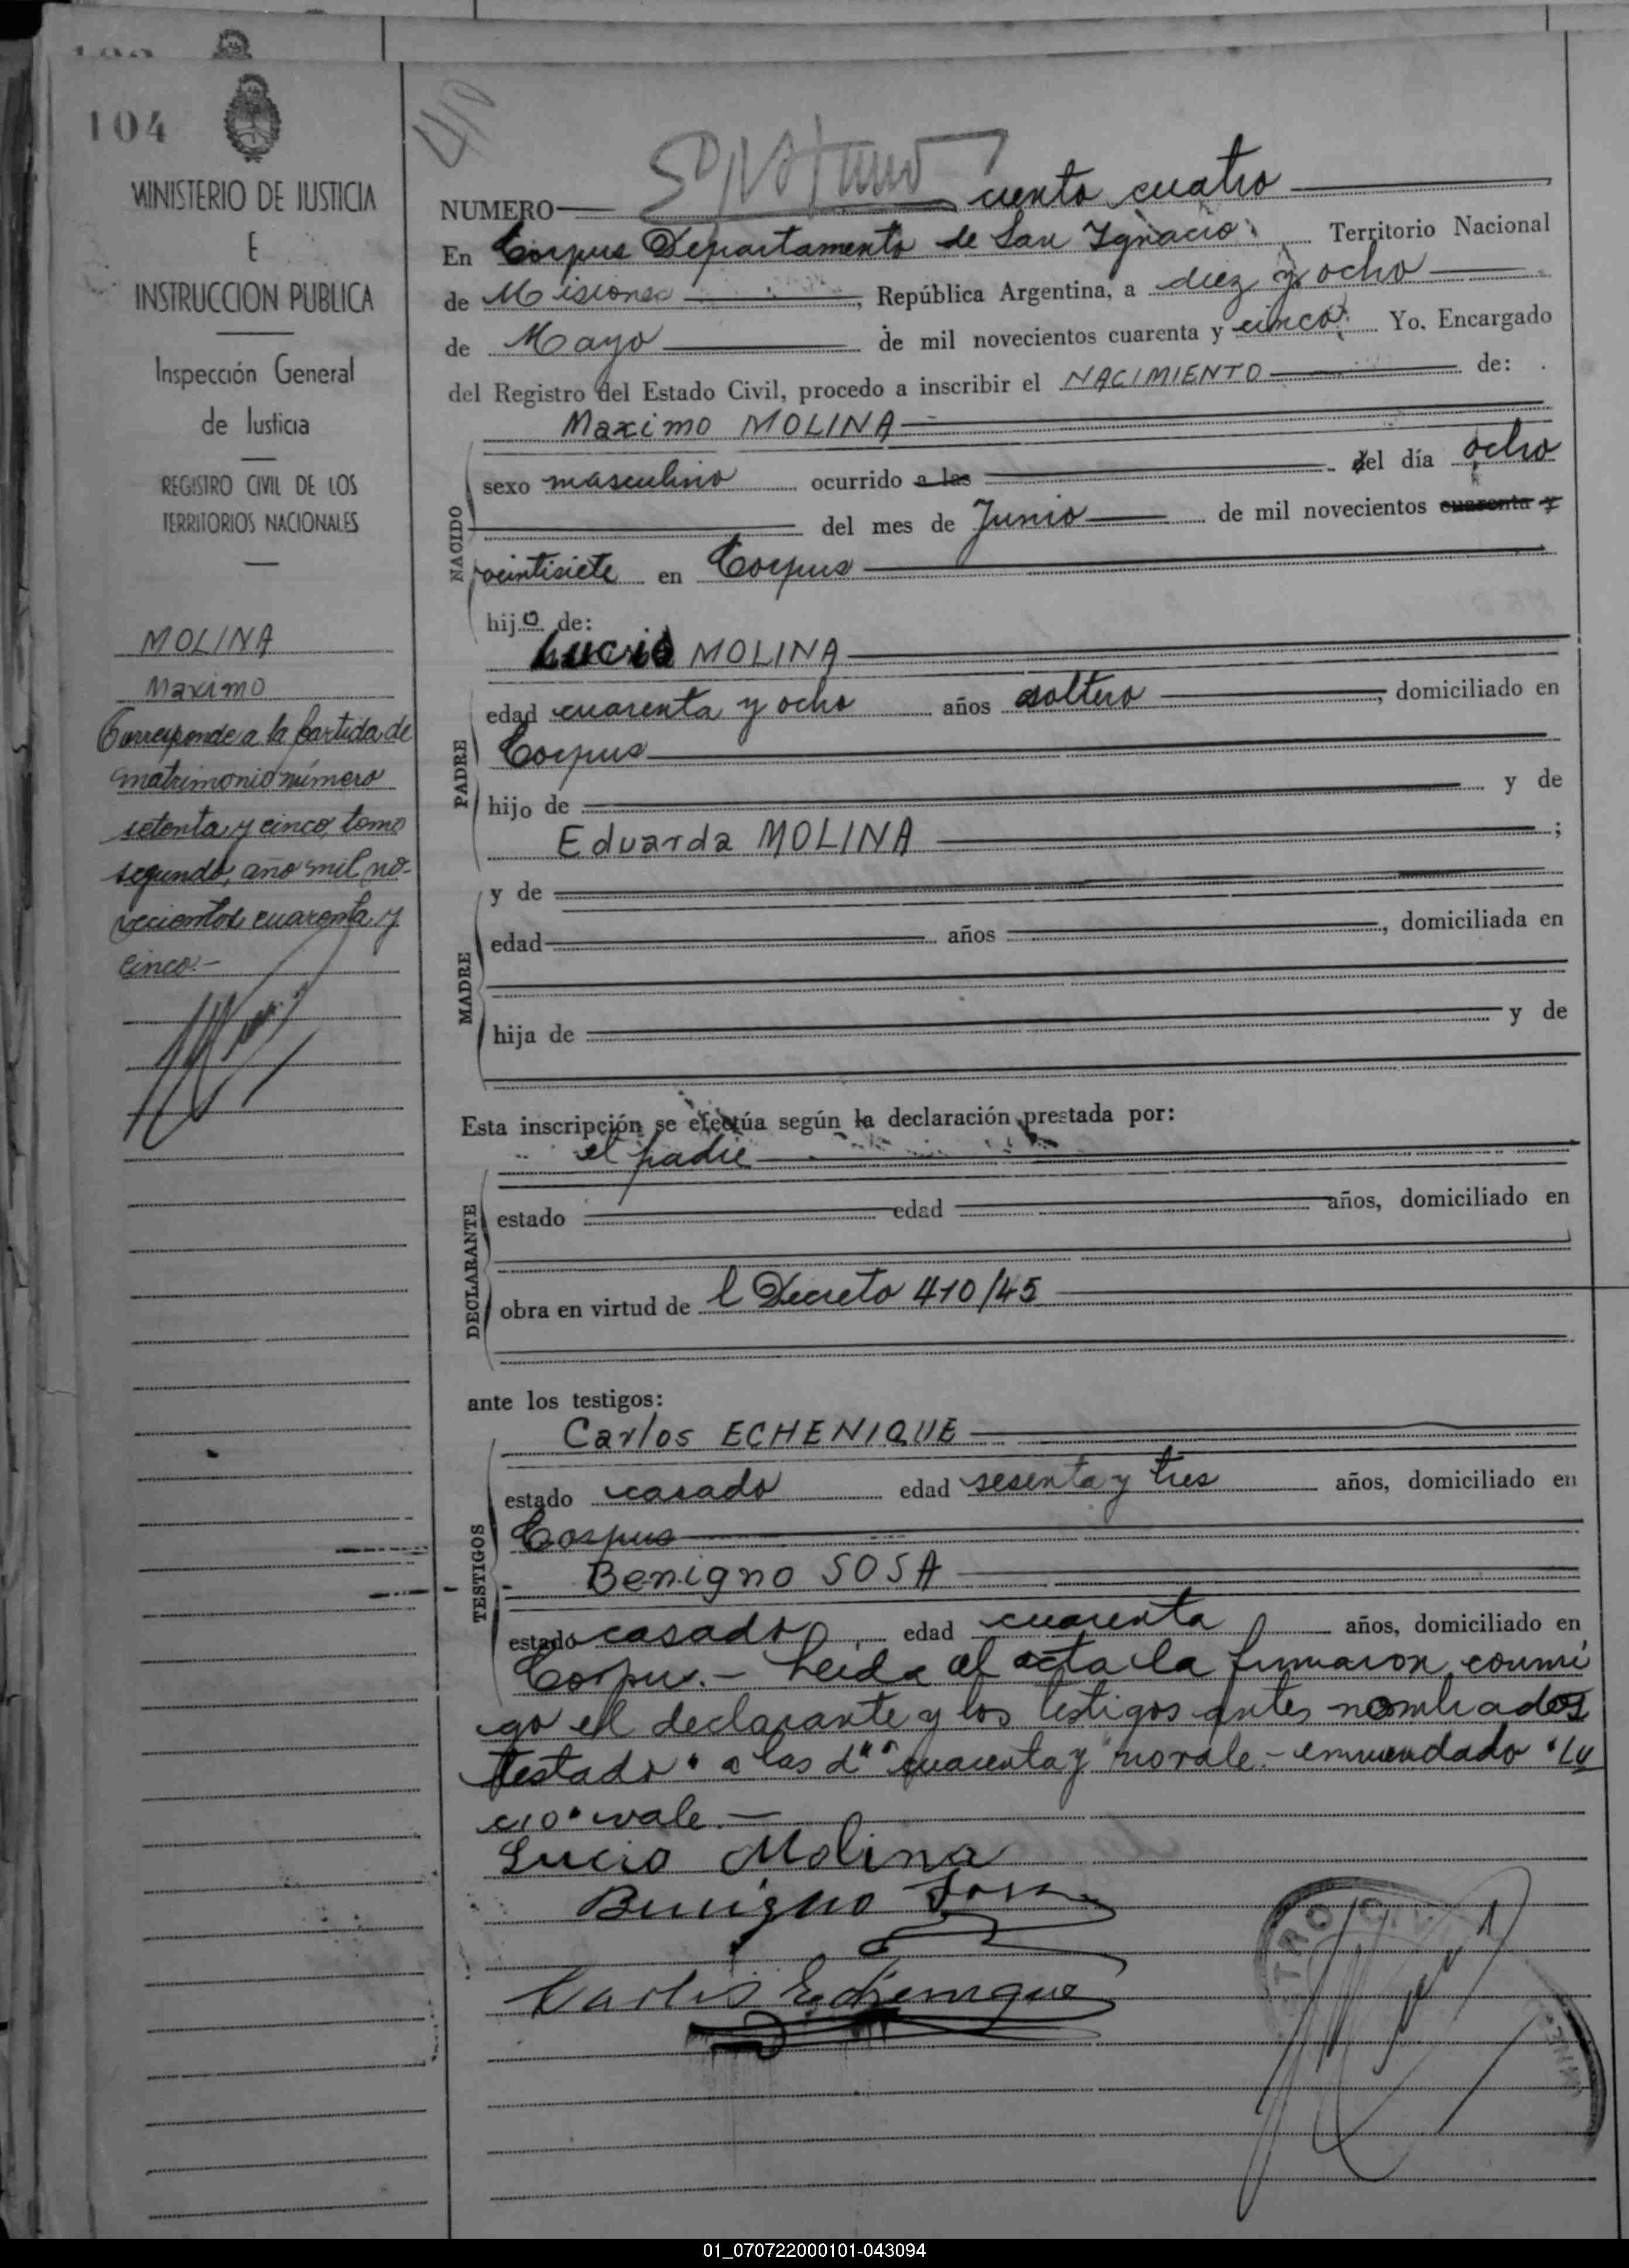 104
MINISTERIO DE JUSTICIA
E
INSTRUCCION PUBLICA
Inspección General
de Justicia
REGISTRO CIVIL DE LOS
TERRITORIOS NACIONALES
MOLINA
Maximo
Corresponde a la partida de
matrimonio número
setenta y cinco, tomo
segundo, año mil no-
vecientos cuarenta y
cinco.-
NUMERO ciento cuatro
En Corpus Departamento de San Ignacio, Territorio Nacional
de Misiones, República Argentina, a diez y ocho
de Mayo de mil novecientos cuarenta y cinco, Yo, Encargado
del Registro del Estado Civil, procedo a inscribir el NACIMIENTO de:
Maximo MOLINA
NACIDO
sexo masculino ocurrido a las del día ocho
del mes de Junio de mil novecientos cuarenta y
veintisiete en Corpus
hijo de:
Lucio MOLINA
PADRE
edad cuarenta y ocho años soltero, domiciliado en
Corpus
hijo de y de
Eduarda MOLINA ;
MADRE
y de
edad años , domiciliada en
hija de y de
Esta inscripción se efectúa según la declaración prestada por:
el padre
DECLARANTE
estado edad años, domiciliado en
obra en virtud de l Decreto 410/45
ante los testigos:
TESTIGOS
Carlos ECHENIQUE
estado casado edad sesenta y tres años, domiciliado en
Corpus
Benigno SOSA
estado casado, edad cuarenta años, domiciliado en
Corpus.- Leida el acta la firmaron conmi
go el declarante y los testigos antes nombrados
testado "a las d" "cuarenta y" no vale.- enmendado "Lu
cio" vale.-
Lucio Molina
Benigno Sosa
Carlos Echenique
01_070722000101-043094